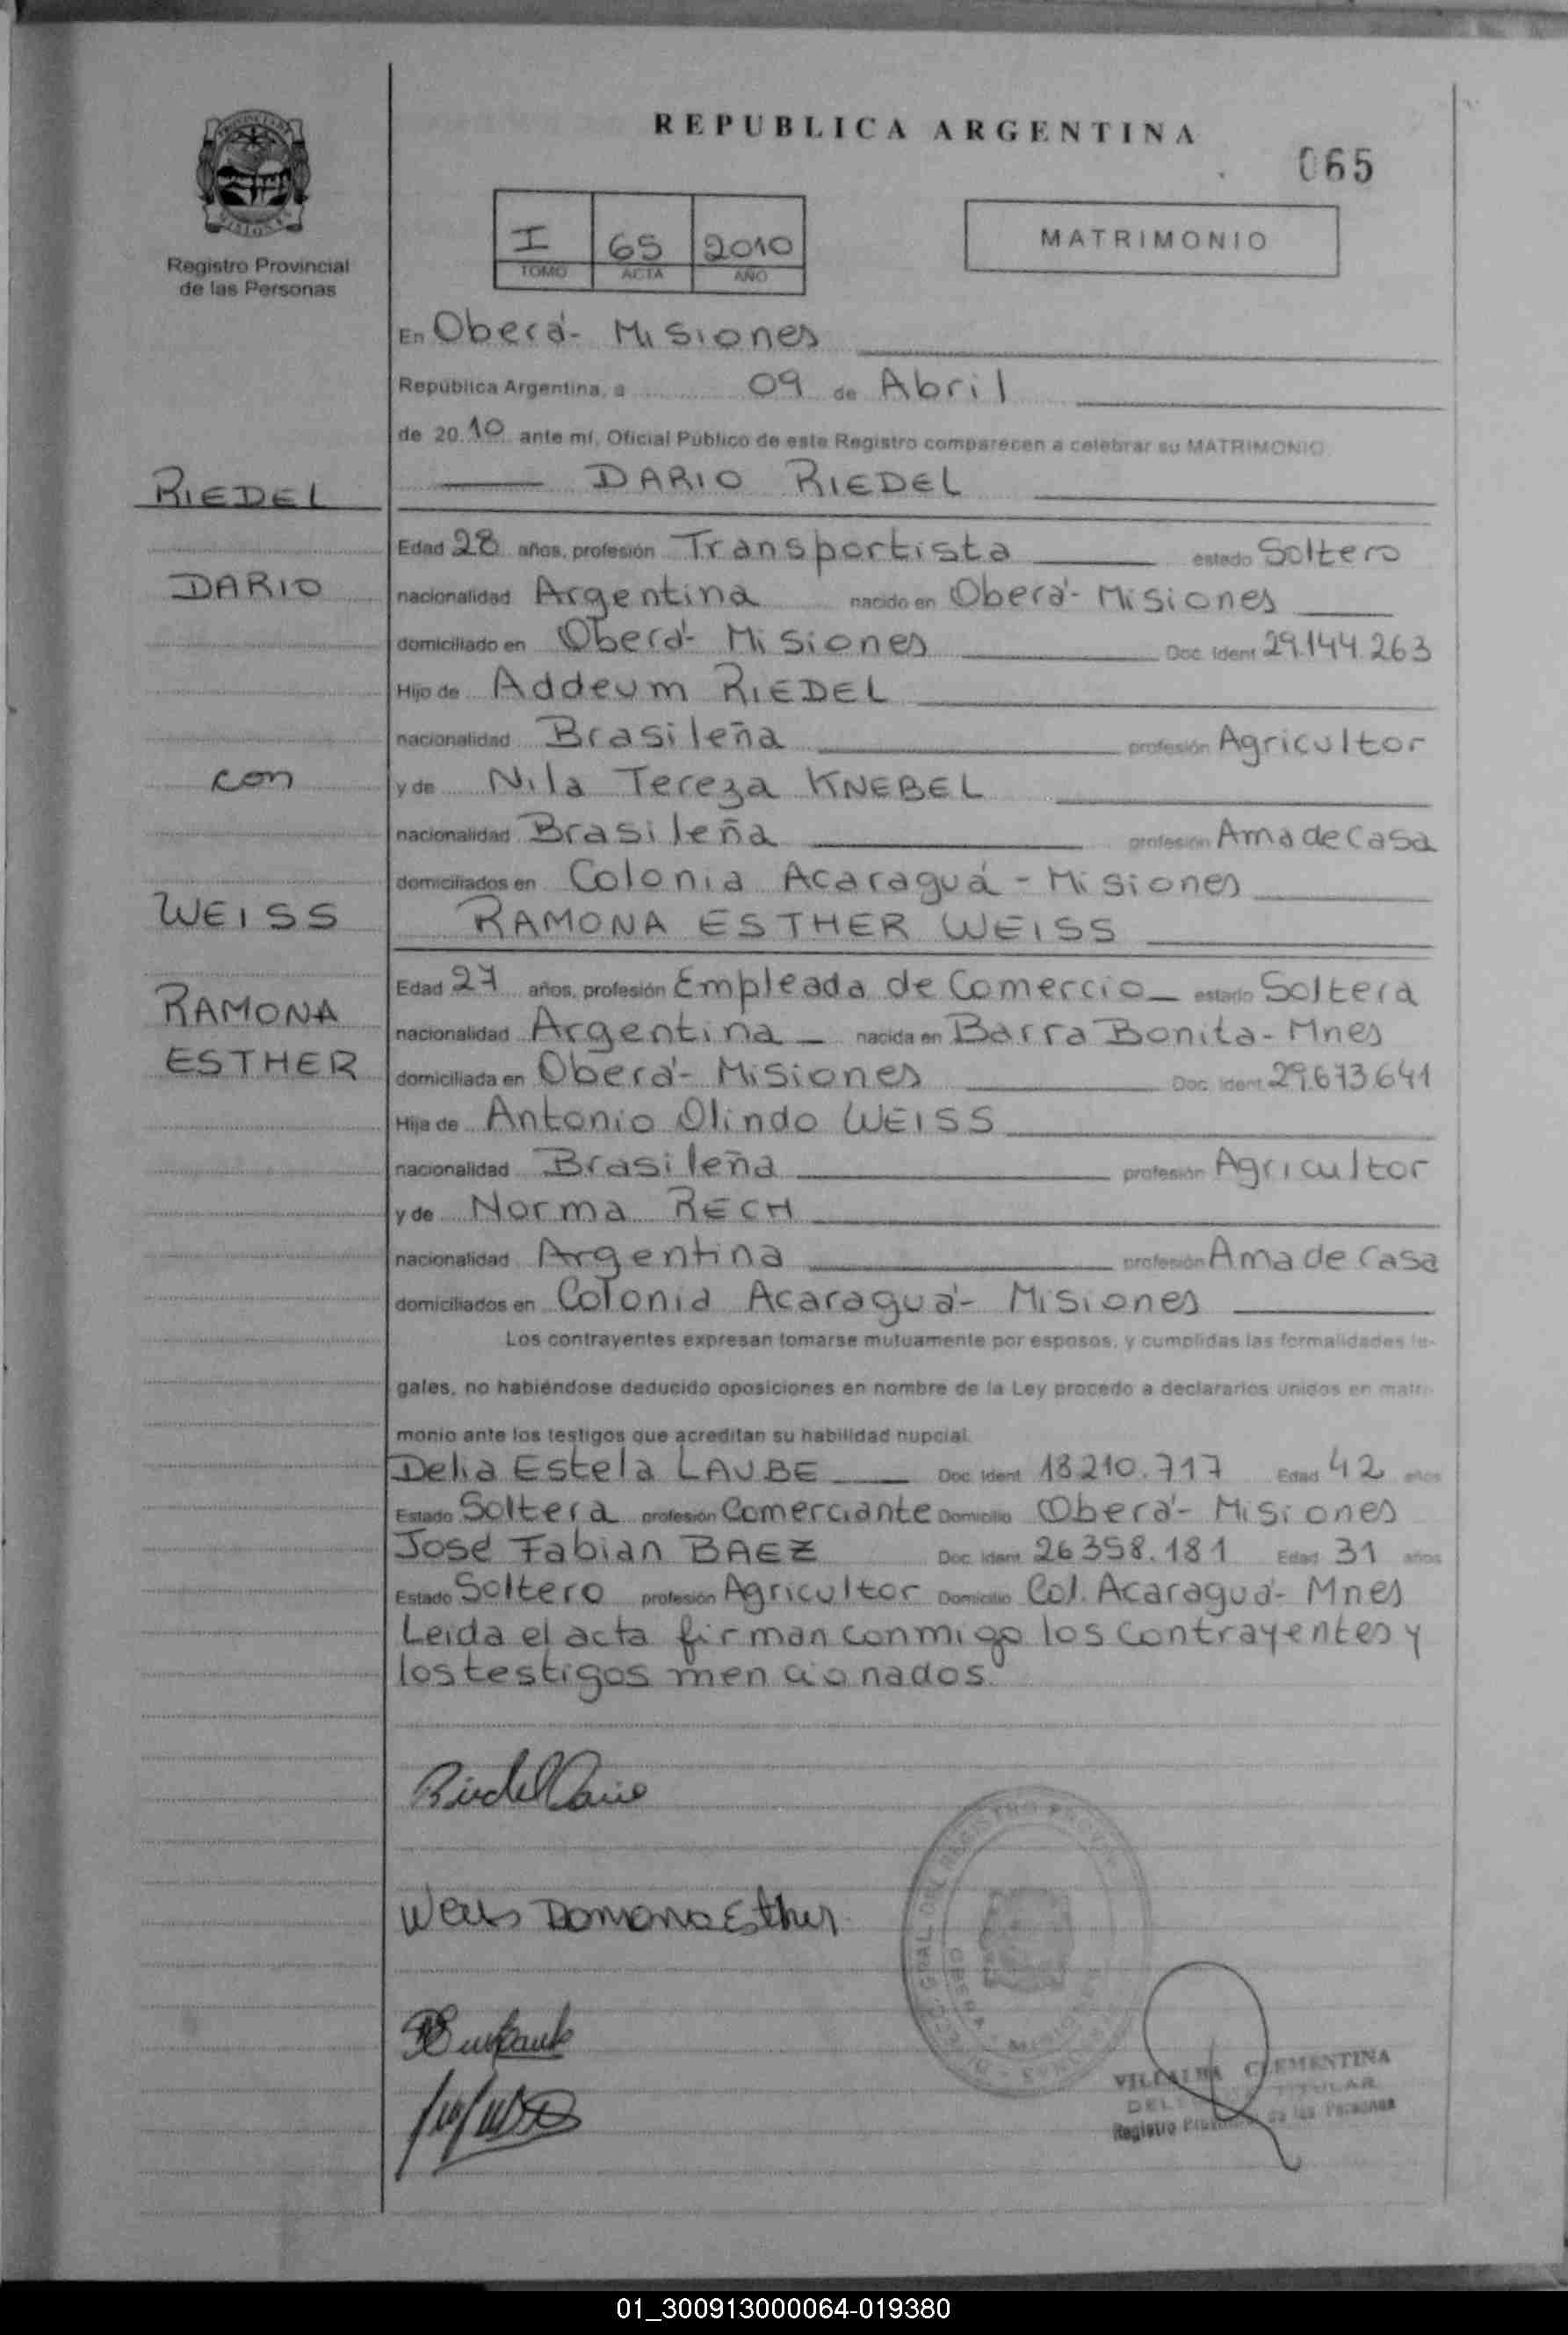 REPUBLICA ARGENTINA
065
Registro Provincial
de las Personas
I 65 2010
TOMO ACTA AÑO
MATRIMONIO
En Oberá- Misiones
República Argentina, a 09 de Abril
de 20 10 ante mí, Oficial Público de este Registro comparecen a celebrar su MATRIMONIO
RIEDEL
DARIO RIEDEL
Edad 28 años, profesión Transportista estado Soltero
DARIO
nacionalidad Argentina nacido en Oberá- Misiones
domiciliado en Oberá- Misiones Doc. Ident 29.144.263
Hijo de Addeum RIEDEL
nacionalidad Brasileña profesión Agricultor
con
y de Nila Tereza KNEBEL
nacionalidad Brasileña profesión Ama de Casa
domiciliados en Colonia Acaraguá - Misiones
WEISS
RAMONA ESTHER WEISS
Edad 27 años, profesión Empleada de Comercio estado Soltera
RAMONA
nacionalidad Argentina nacida en Barra Bonita- Mnes
ESTHER
domiciliada en Oberá- Misiones Doc. Ident. 29.673.641
Hija de Antonio Olindo WEISS
nacionalidad Brasileña profesión Agricultor
y de Norma RECH
nacionalidad Argentina profesión Ama de Casa
domiciliados en Colonia Acaraguá- Misiones
Los contrayentes expresan tomarse mutuamente por esposos, y cumplidas las formalidades le-
gales, no habiéndose deducido oposiciones en nombre de la Ley procedo a declararlos unidos en matri-
monio ante los testigos que acreditan su habilidad nupcial.
Delia Estela LAUBE Doc. Ident 18.210.717 Edad 42 años
Estado Soltera profesión Comerciante Domicilio Oberá- Misiones
José Fabian BAEZ Doc. Ident. 26.358.181 Edad 31 años
Estado Soltero profesión Agricultor Domicilio Col. Acaraguá- Mnes
Leida el acta firman conmigo los contrayentes y
los testigos mencionados.
Riedel Dario
Weiss Ramona Esther
VILLALBA CLEMENTINA
TITULAR
Registro de las Personas
01_300913000064-019380